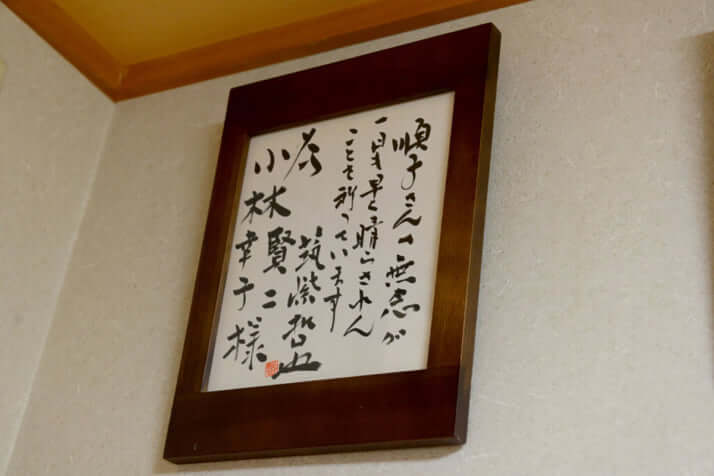 順子さんの無念が
一日も早く晴らされん
ことを祈っています
筑紫哲也
小林賢二
幸子様